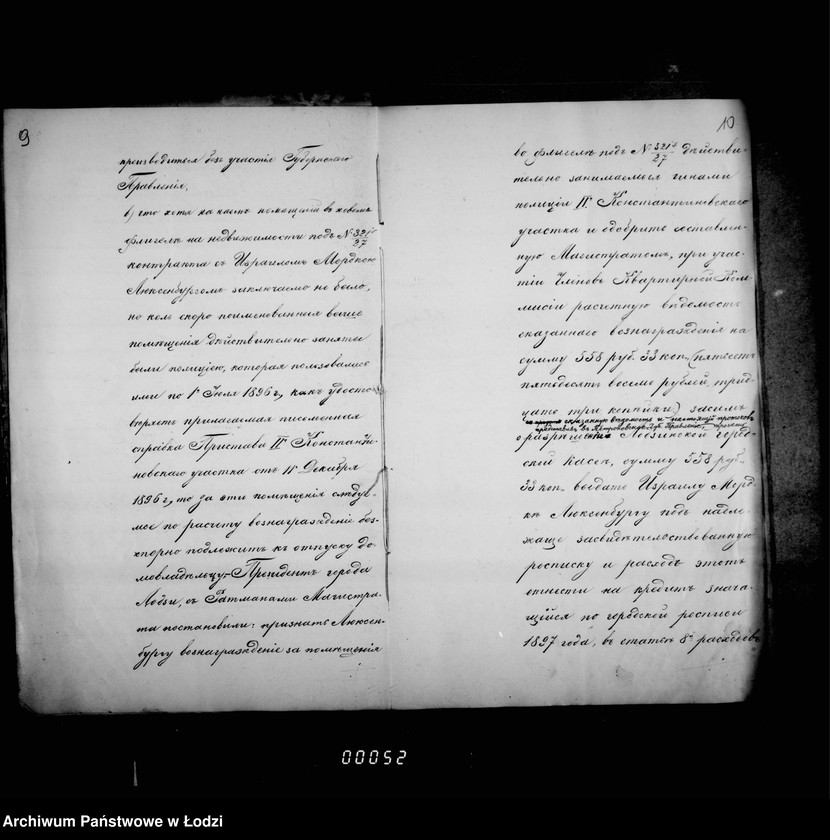 9
производиться безъ участія Губернскаго
Правленія,
в) что хотя на часть помѣщеній въ новомъ
флигелѣ на недвижимости подъ № 321д/27
контракта съ Израилемъ Мордкою
Люксенбургомъ заключаемо не было,
но коль скоро поименованныя выше
помѣщенія дѣйствительно заняты
были полиціею, которая пользовалась
ими по 1е Іюля 1896 г., какъ удосто-
вѣряетъ прилагаемая письменная
справка Пристава II Константи-
новскаго участка отъ 11 Декабря
1896 г., то за эти помѣщенія слѣдуе-
мое по расчету вознагражденіе без-
спорно подлежитъ къ отпуску до-
мовладѣльцу, Президентъ города
Лодзи, съ Ратманами Магистра-
та постановили: признать Люксен-
бургу вознагражденіе за помѣщенія
10
во флигелѣ подъ № 321д/27 дѣйстви-
тельно занимаемыя чинами
полиціи II Константиновскаго
участка и одобрить составлен-
ную Магистратомъ, при учас-
тіи Членовъ Квартирной Ком-
мисіи расчетную вѣдомость
сказаннаго вознагражденія на
сумму 558 руб. 33 коп. (пятьсотъ
пятьдесятъ восемь рублей трид-
цать три копѣйки) засимъ
сказанную вѣдомость и настоящій протоколъ
представить въ Петроковское Губ. Правленіе, прося
о разрѣшеніи Лодзинской город-
ской Кассѣ, сумму 558 руб.
33 коп. выдать Израилу Морд-
кѣ Люксенбургу подъ надле-
жаще засвидѣтельствованную
росписку и расходъ этотъ
отнести на кредитъ знача-
щійся по городской росписи
1897 года, въ статьѣ 8й расходовъ
00052
Archiwum Państwowe w Łodzi